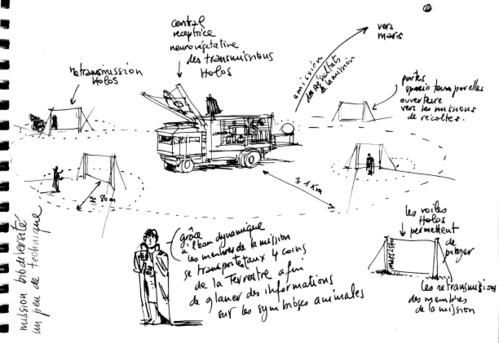 retransmission
Holos
central
réceptrice
neurovégétative
des transmissions
Holos
émission
des résultats
de la mission
vers
mars
portes
spacio temporelles
ouverture
vers les missions
de récoltes.
≥ 80m
≥ 1 km
mission biodiversité
un peu de technique
grâce
à l'holon dynamique
les membres de la mission
se transportent aux 4 coins
de la Terrestre afin
de glaner des informations
sur les symbioses animales
les voiles
Holos
permettent
de
piéger
les retransmissions
des membres
de la mission